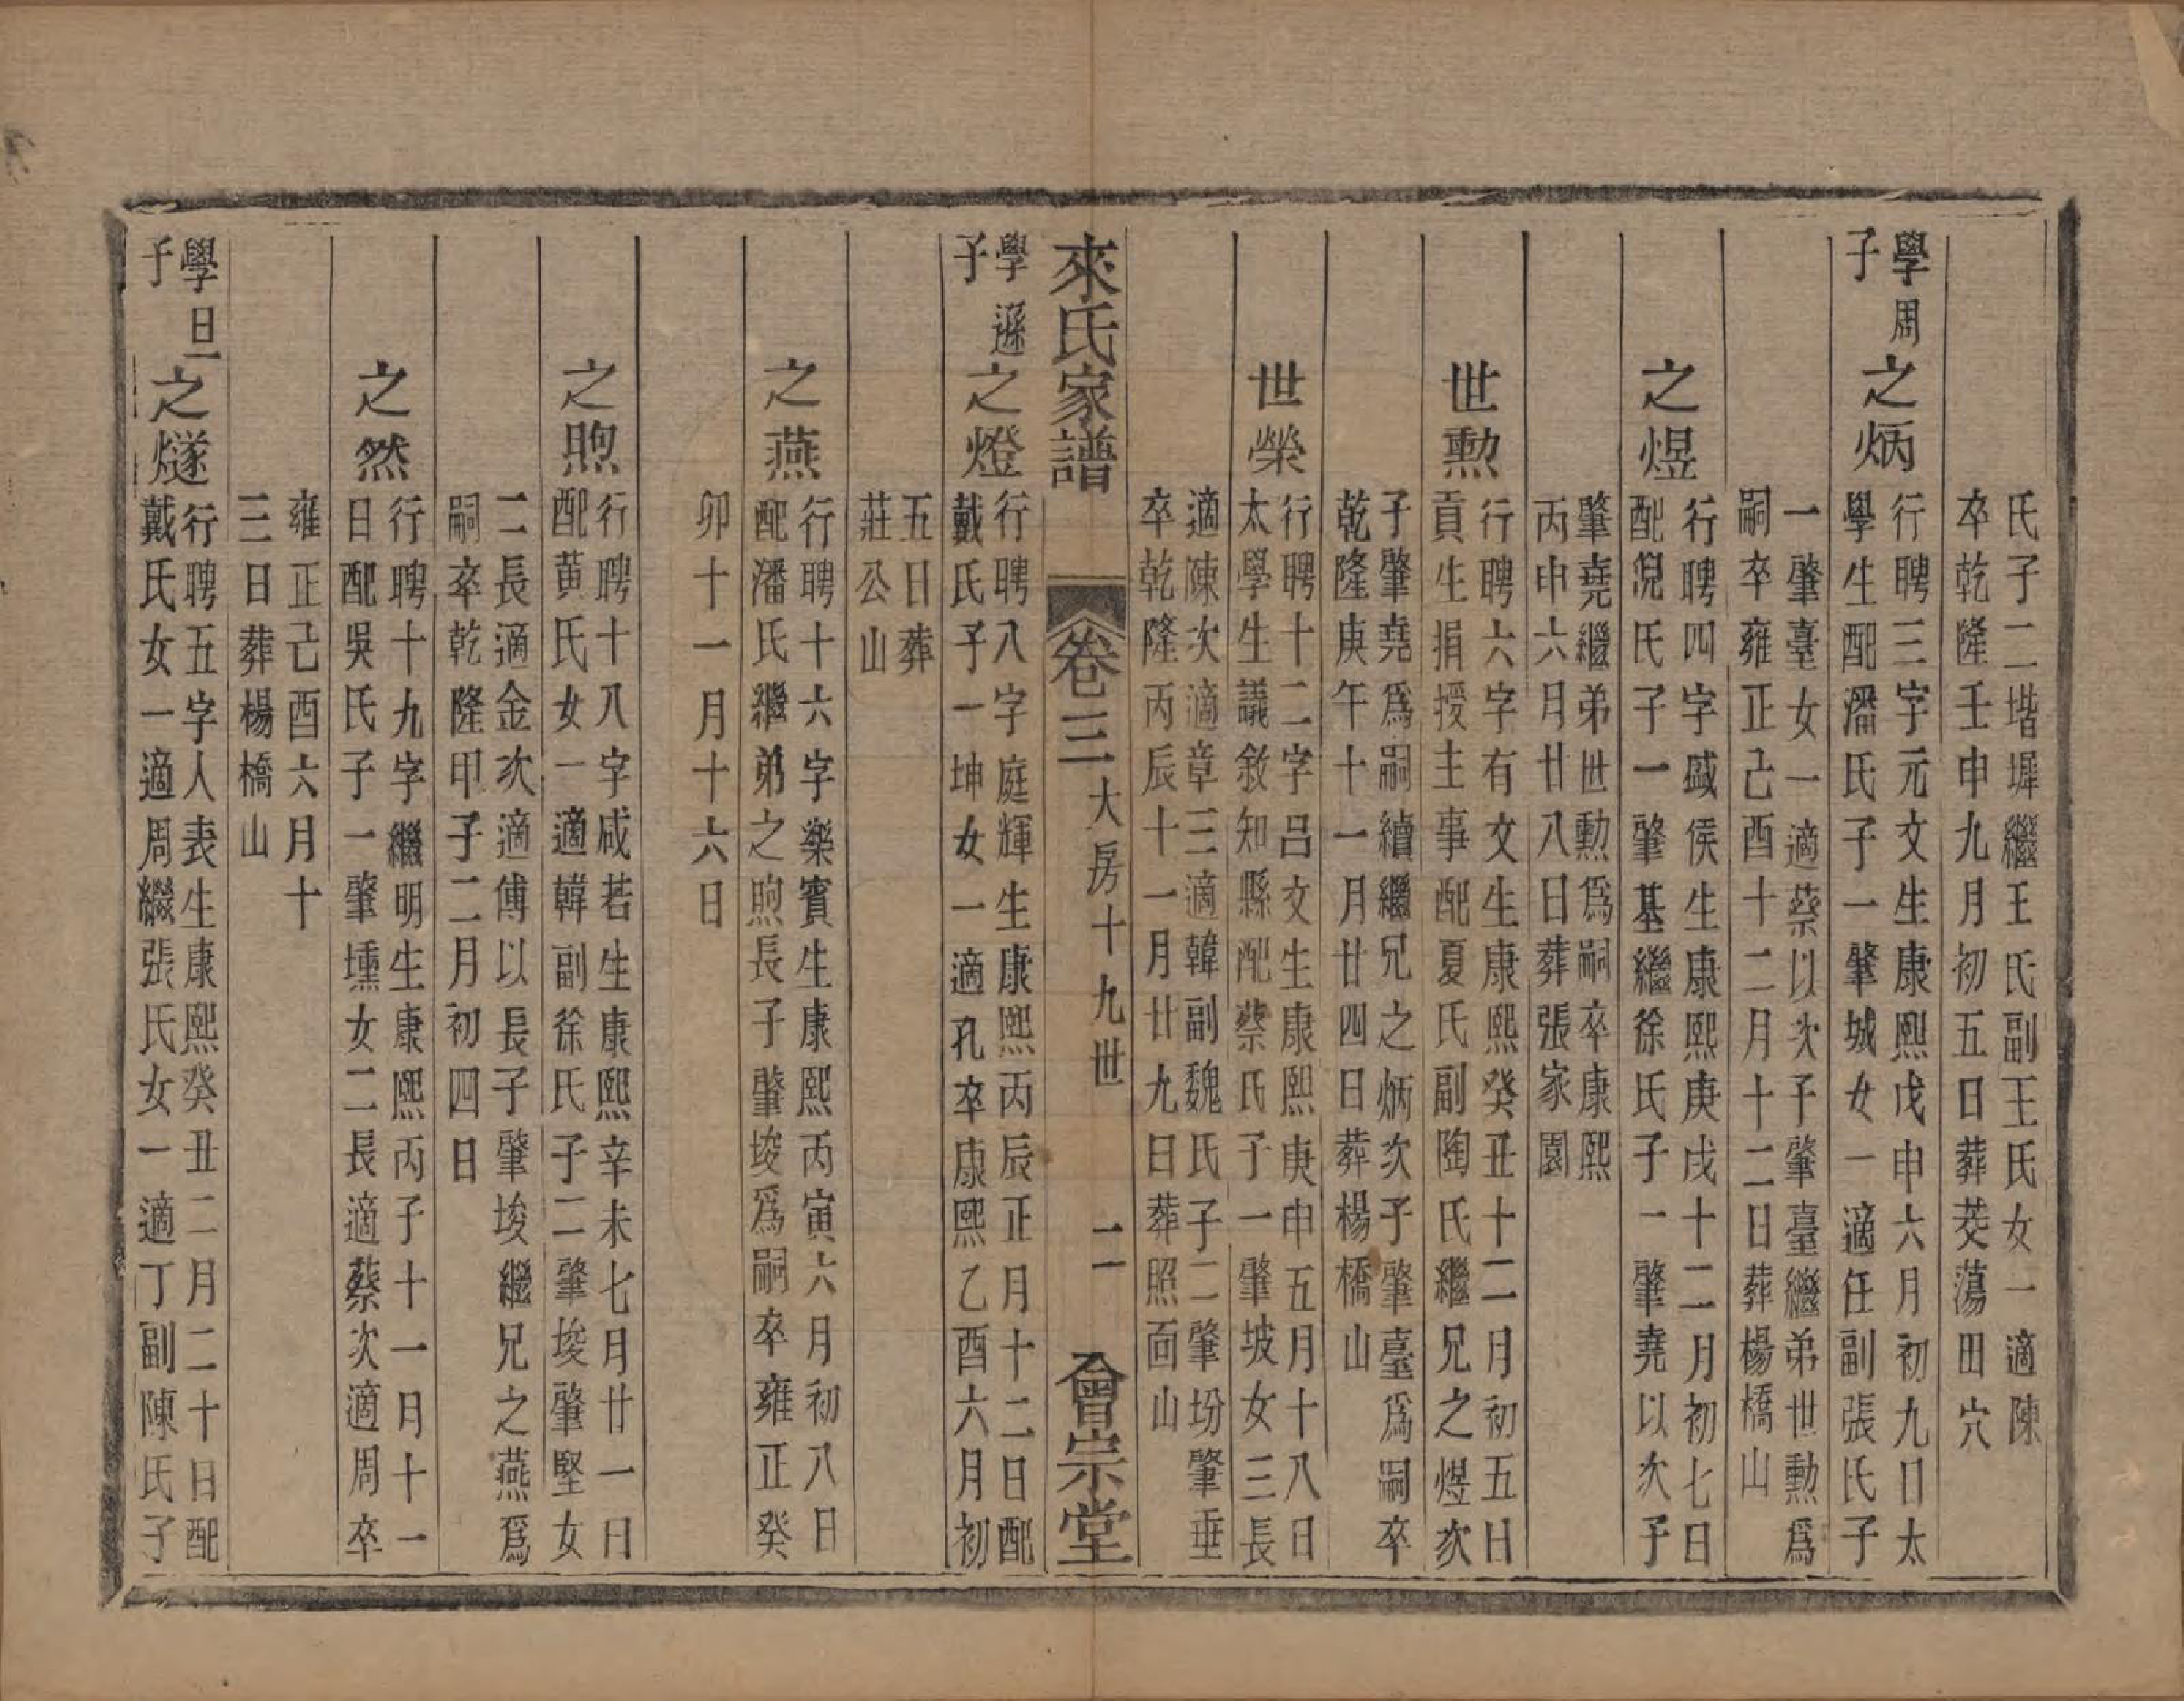 氏子二堦墀繼王氏副王氏女一適陳
卒乾隆壬申九月初五日葬茭蕩田穴
學周子
之炳
行聘三字元文生康熙戊申六月初九日太
學生配潘氏子一肇城女一適任副張氏子
一肇臺女一適蔡以次子肇臺繼弟世勲爲
嗣卒雍正己酉十二月十二日葬楊橋山
之煜
行聘四字盛侯生康熙庚戌十二月初七日
配倪氏子一肇基繼徐氏子一肇堯以次子
肇堯繼弟世勲爲嗣卒康熙
丙申六月廿八日葬張家園
世勲
行聘六字有文生康熙癸丑十二月初五日
貢生捐授主事配夏氏副陶氏繼兄之煜次
子肇堯爲嗣續繼兄之炳次子肇臺爲嗣卒
乾隆庚午十一月廿四日葬楊橋山
世榮
行聘十二字呂文生康熙庚申五月十八日
太學生議敘知縣配蔡氏子一肇坡女三長
適陳次適章三適韓副魏氏子二肇坋肇垂
卒乾隆丙辰十一月廿九日葬照面山
來氏家譜
卷三
大房十九世
二
會宗堂
學遜子
之燈
行聘八字庭輝生康熙丙辰正月十二日配
戴氏子一坤女一適孔卒康熙乙酉六月初
五日葬
莊公山
之燕
行聘十六字樂賓生康熙丙寅六月初八日
配潘氏繼弟之煦長子肇埈爲嗣卒雍正癸
卯十一月十六日
之煦
行聘十八字咸若生康熙辛未七月廿一日
配黄氏女一適韓副徐氏子二肇埈肇堅女
二長適金次適傅以長子肇埈繼兄之燕爲
嗣卒乾隆甲子二月初四日
之然
行聘十九字繼明生康熙丙子十一月十一
日配吳氏子一肇壎女二長適蔡次適周卒
雍正己酉六月十
三日葬楊橋山
學旦子
之燧
行聘五字人表生康熙癸丑二月二十日配
戴氏女一適周繼張氏女一適丁副陳氏子